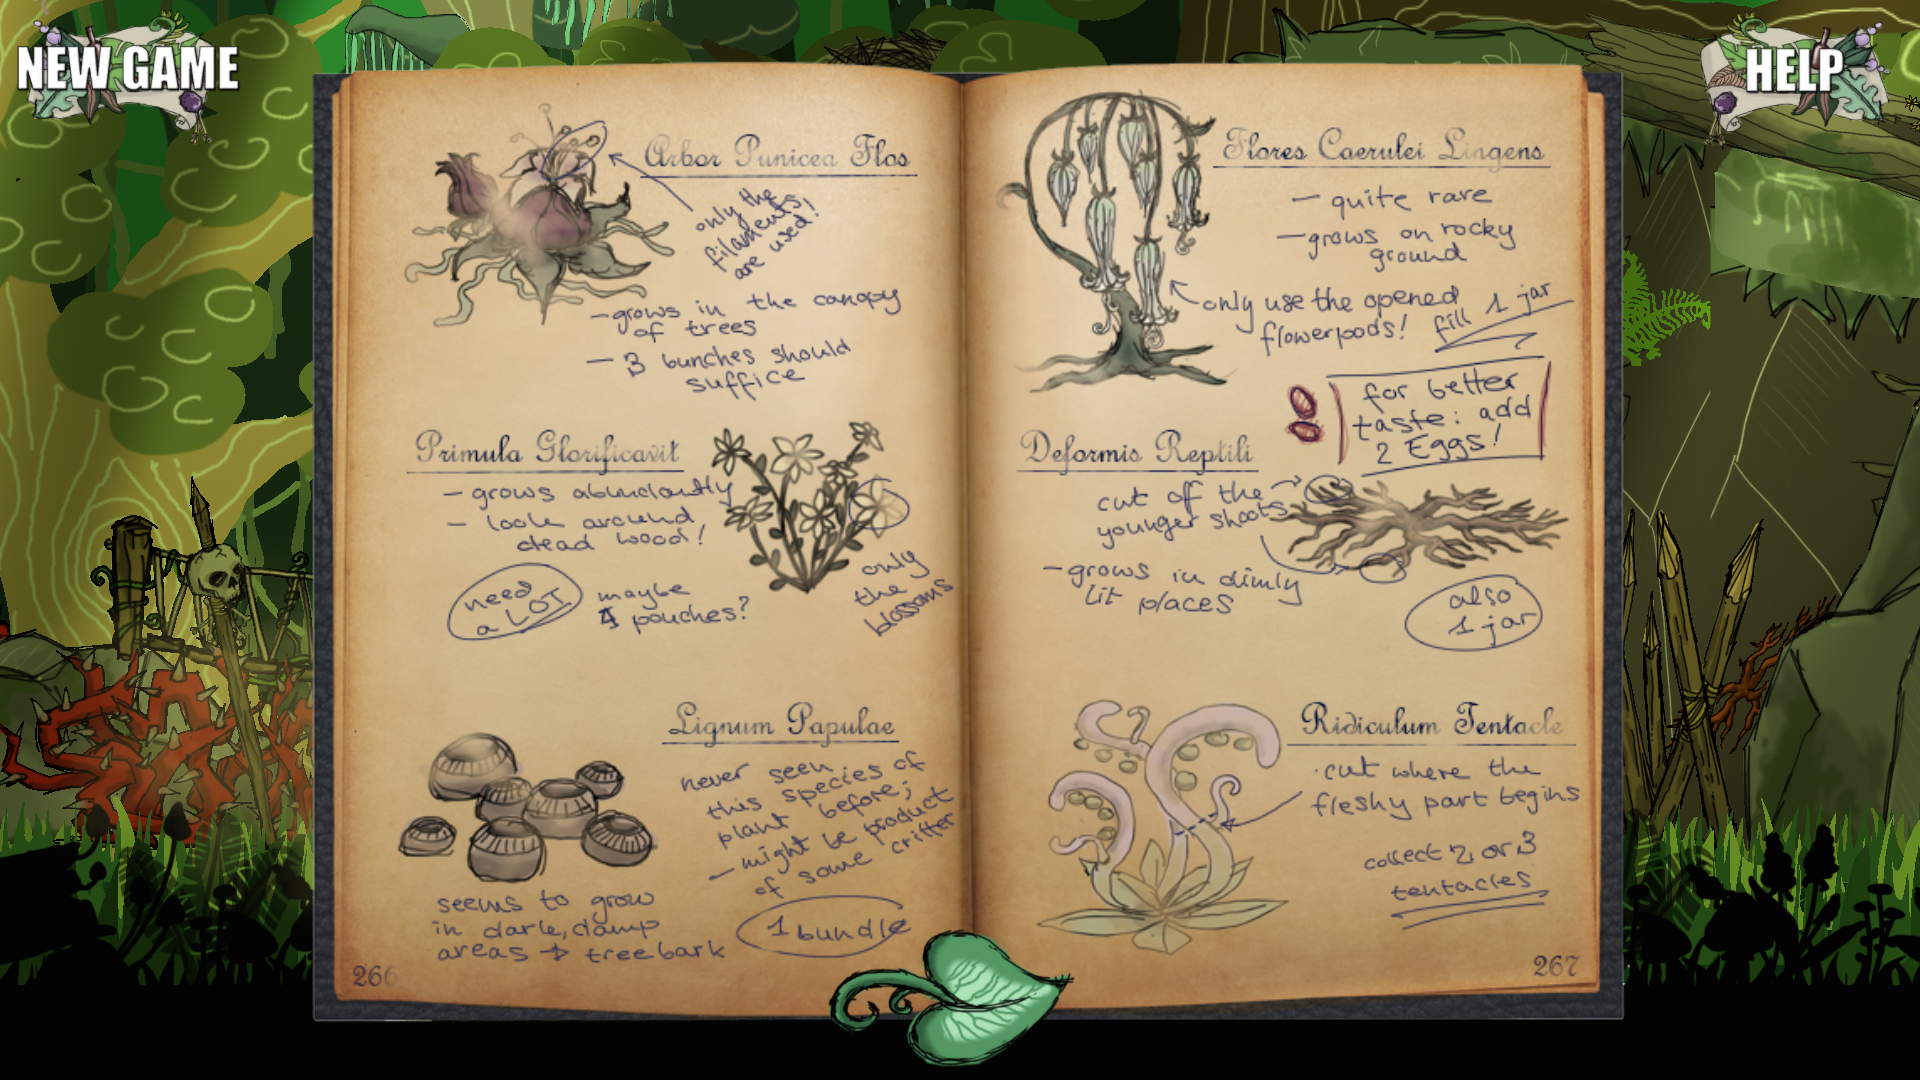 NEW GAME
HELP
Arbor Punicea Flos
only the
filaments,
are used!
– grows in the canopy
of trees
– 3 bunches should
suffice
Primula Glorificavit
– grows abundantly
– look around
dead wood!
need
a LOT
maybe
4 pouches?
only
the
blossoms
Lignum Papulae
never seen
this species of
plant before;
– might be product
of some critter
seems to grow
in dark, damp
areas → treebark
1 bundle
266
Flores Caerulei Lingens
– quite rare
– grows on rocky
ground
only use the opened
flowerpods!
fill 1 jar
for better
taste: add
2 Eggs!
Deformis Reptili
cut off the
younger shoots
– grows in dimly
lit places
also
1 jar
Ridiculum Tentacle
· cut where the
fleshy part begins
collect 2 or 3
tentacles
267